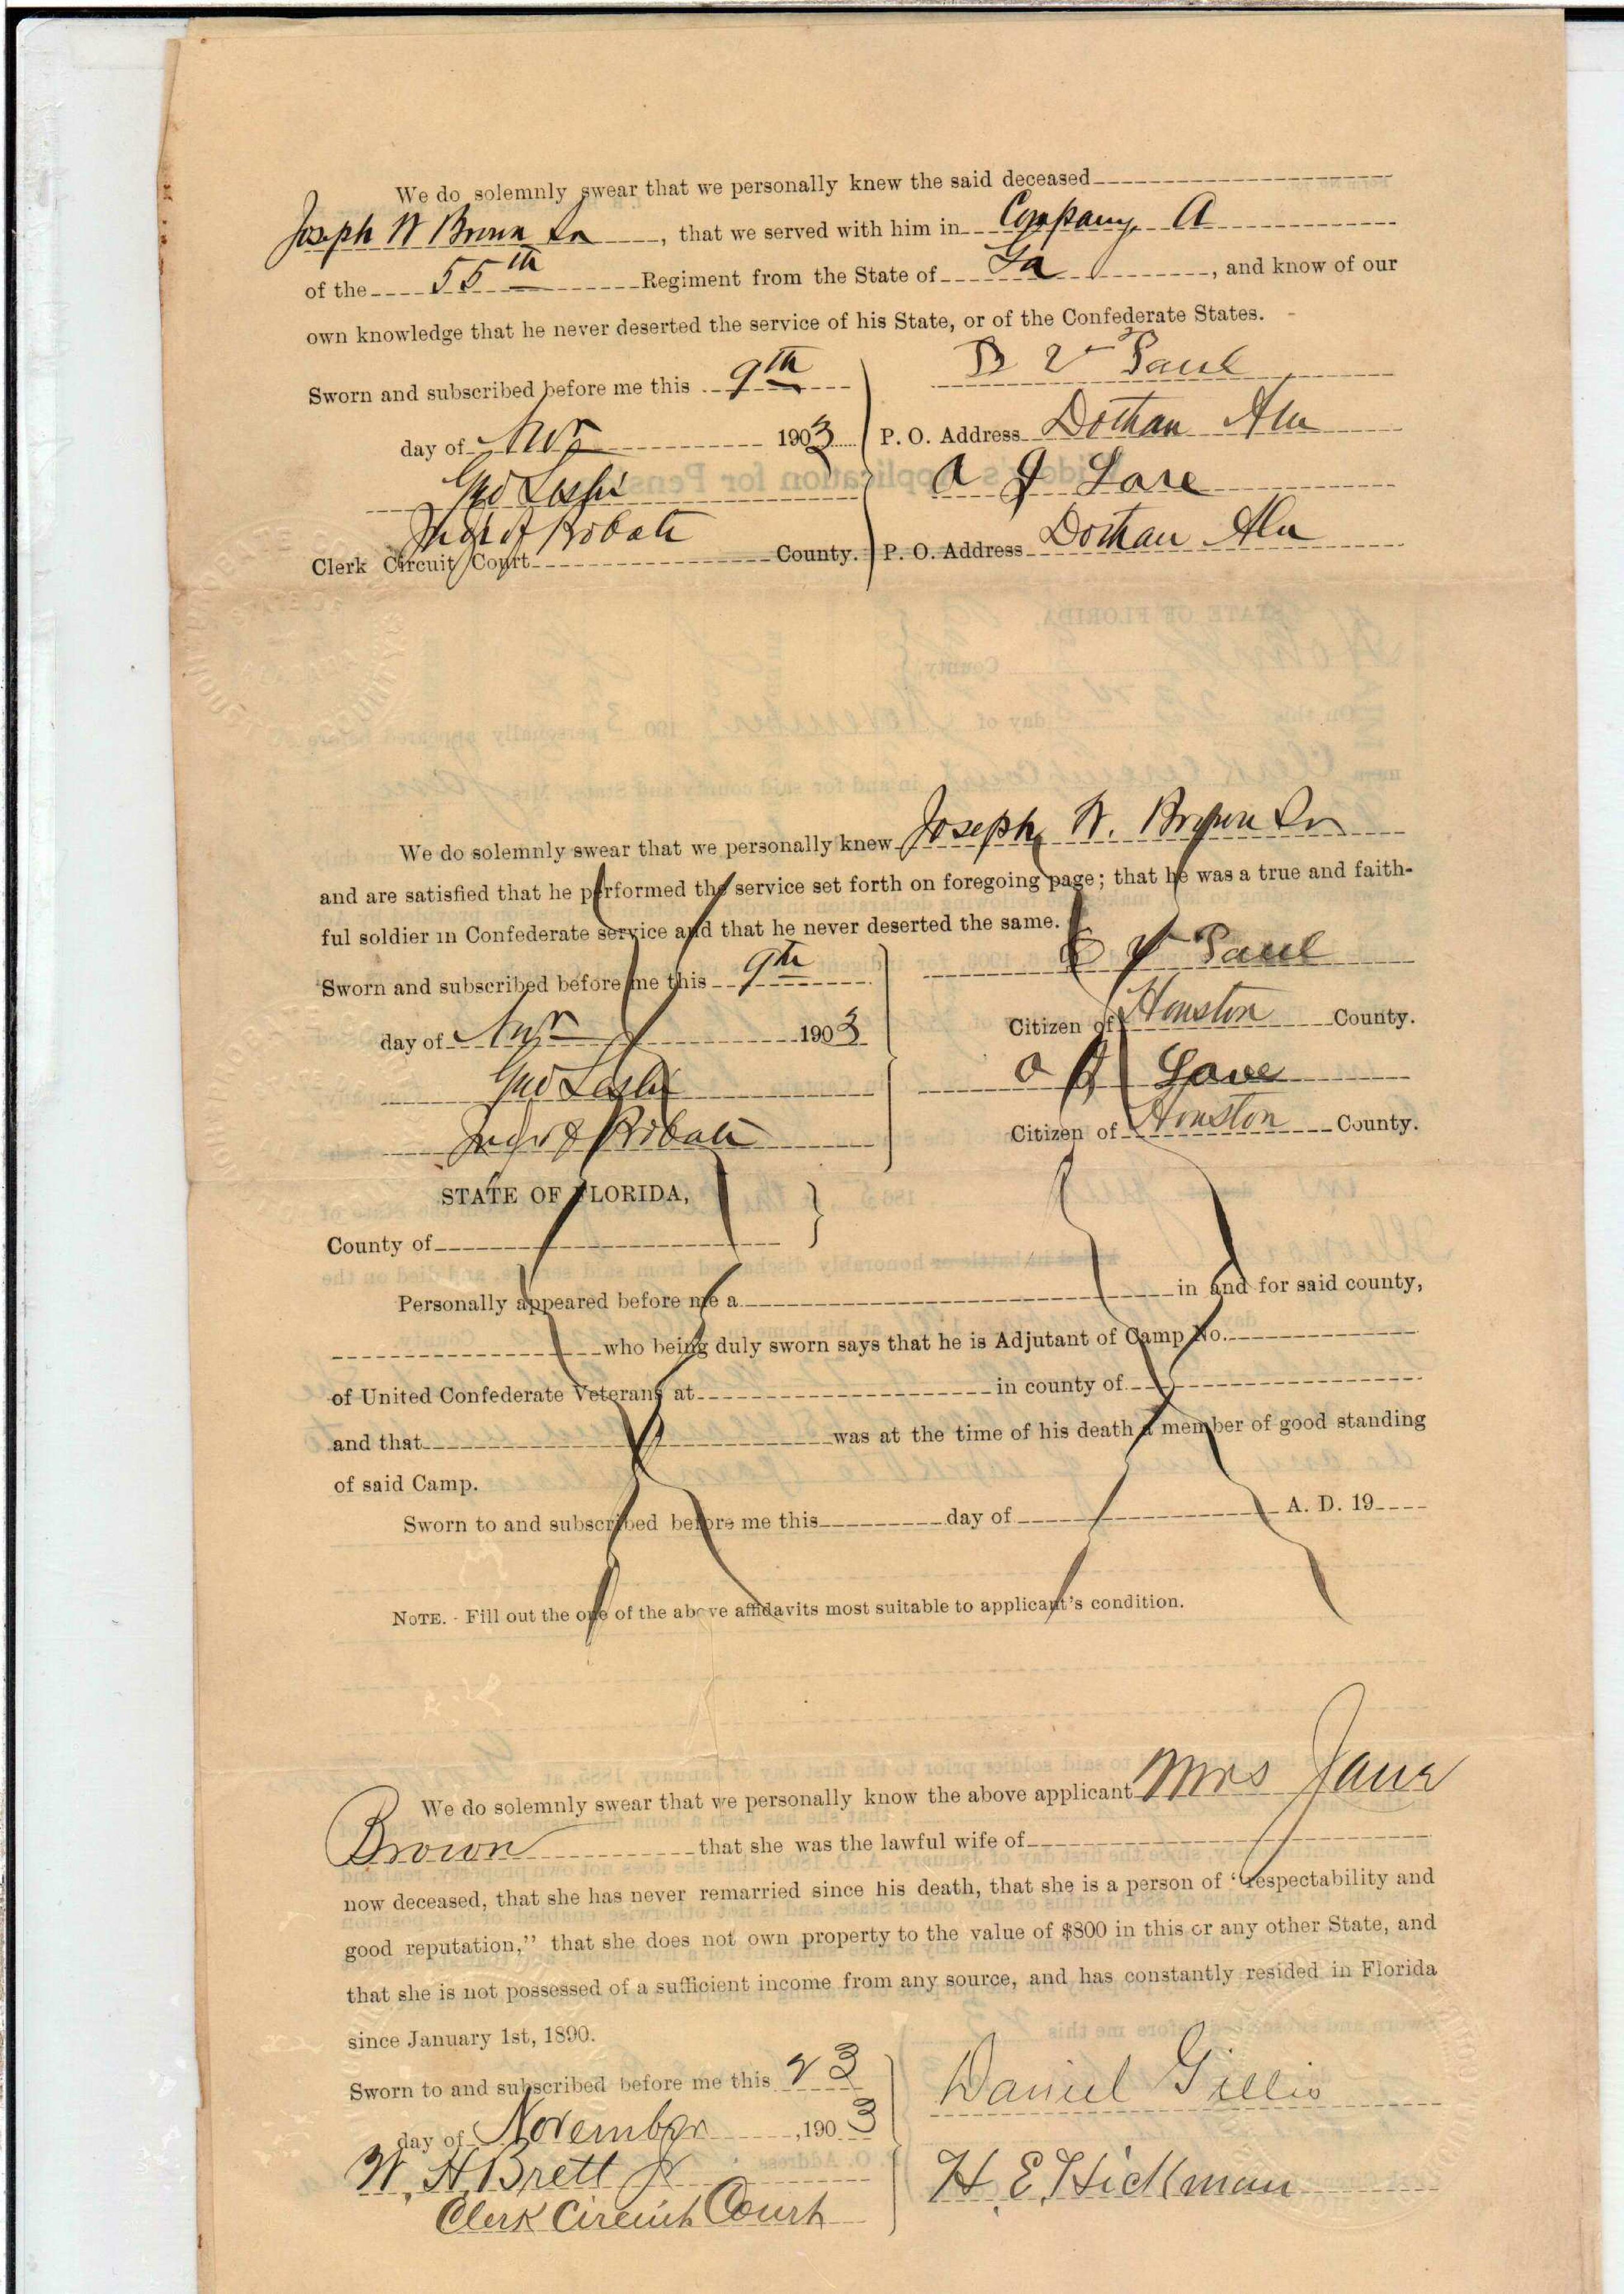 We do solemnly swear that we personally knew the said deceased
Joseph W Brown Sr, that we served with him in Company A
of the 55th Regiment from the State of Ga, and know of our
own knowledge that he never deserted the service of his State, or of the Confederate States.
Sworn and subscribed before me this 9th
B V Paul
day of Nov 1903
P. O. Address Dothan Ala
Geo Leslie
A J Love
Judge of Probate
Clerk Circuit Court County.
P. O. Address Dothan Ala
We do solemnly swear that we personally knew Joseph W. Brown Sr
and are satisfied that he performed the service set forth on foregoing page; that he was a true and faith-
ful soldier in Confederate service and that he never deserted the same.
Sworn and subscribed before me this 9th
B V Paul
day of Nov 1903
Citizen of Houston County.
Geo Leslie
A J Love
Judge of Probate
Citizen of Houston County.
STATE OF FLORIDA,
County of
Personally appeared before me a in and for said county,
who being duly sworn says that he is Adjutant of Camp No.
of United Confederate Veterans at in county of
and that was at the time of his death a member of good standing
of said Camp.
Sworn to and subscribed before me this day of A. D. 19
NOTE. - Fill out the one of the above affidavits most suitable to applicant's condition.
We do solemnly swear that we personally know the above applicant Mrs Jane
Brown that she was the lawful wife of
now deceased, that she has never remarried since his death, that she is a person of "respectability and
good reputation," that she does not own property to the value of $800 in this or any other State, and
that she is not possessed of a sufficient income from any source, and has constantly resided in Florida
since January 1st, 1890.
Sworn to and subscribed before me this 23
Daniel Gillis
day of November, 1903
W. H. Brett Jr
H. E. Hickman
Clerk Circuit Court